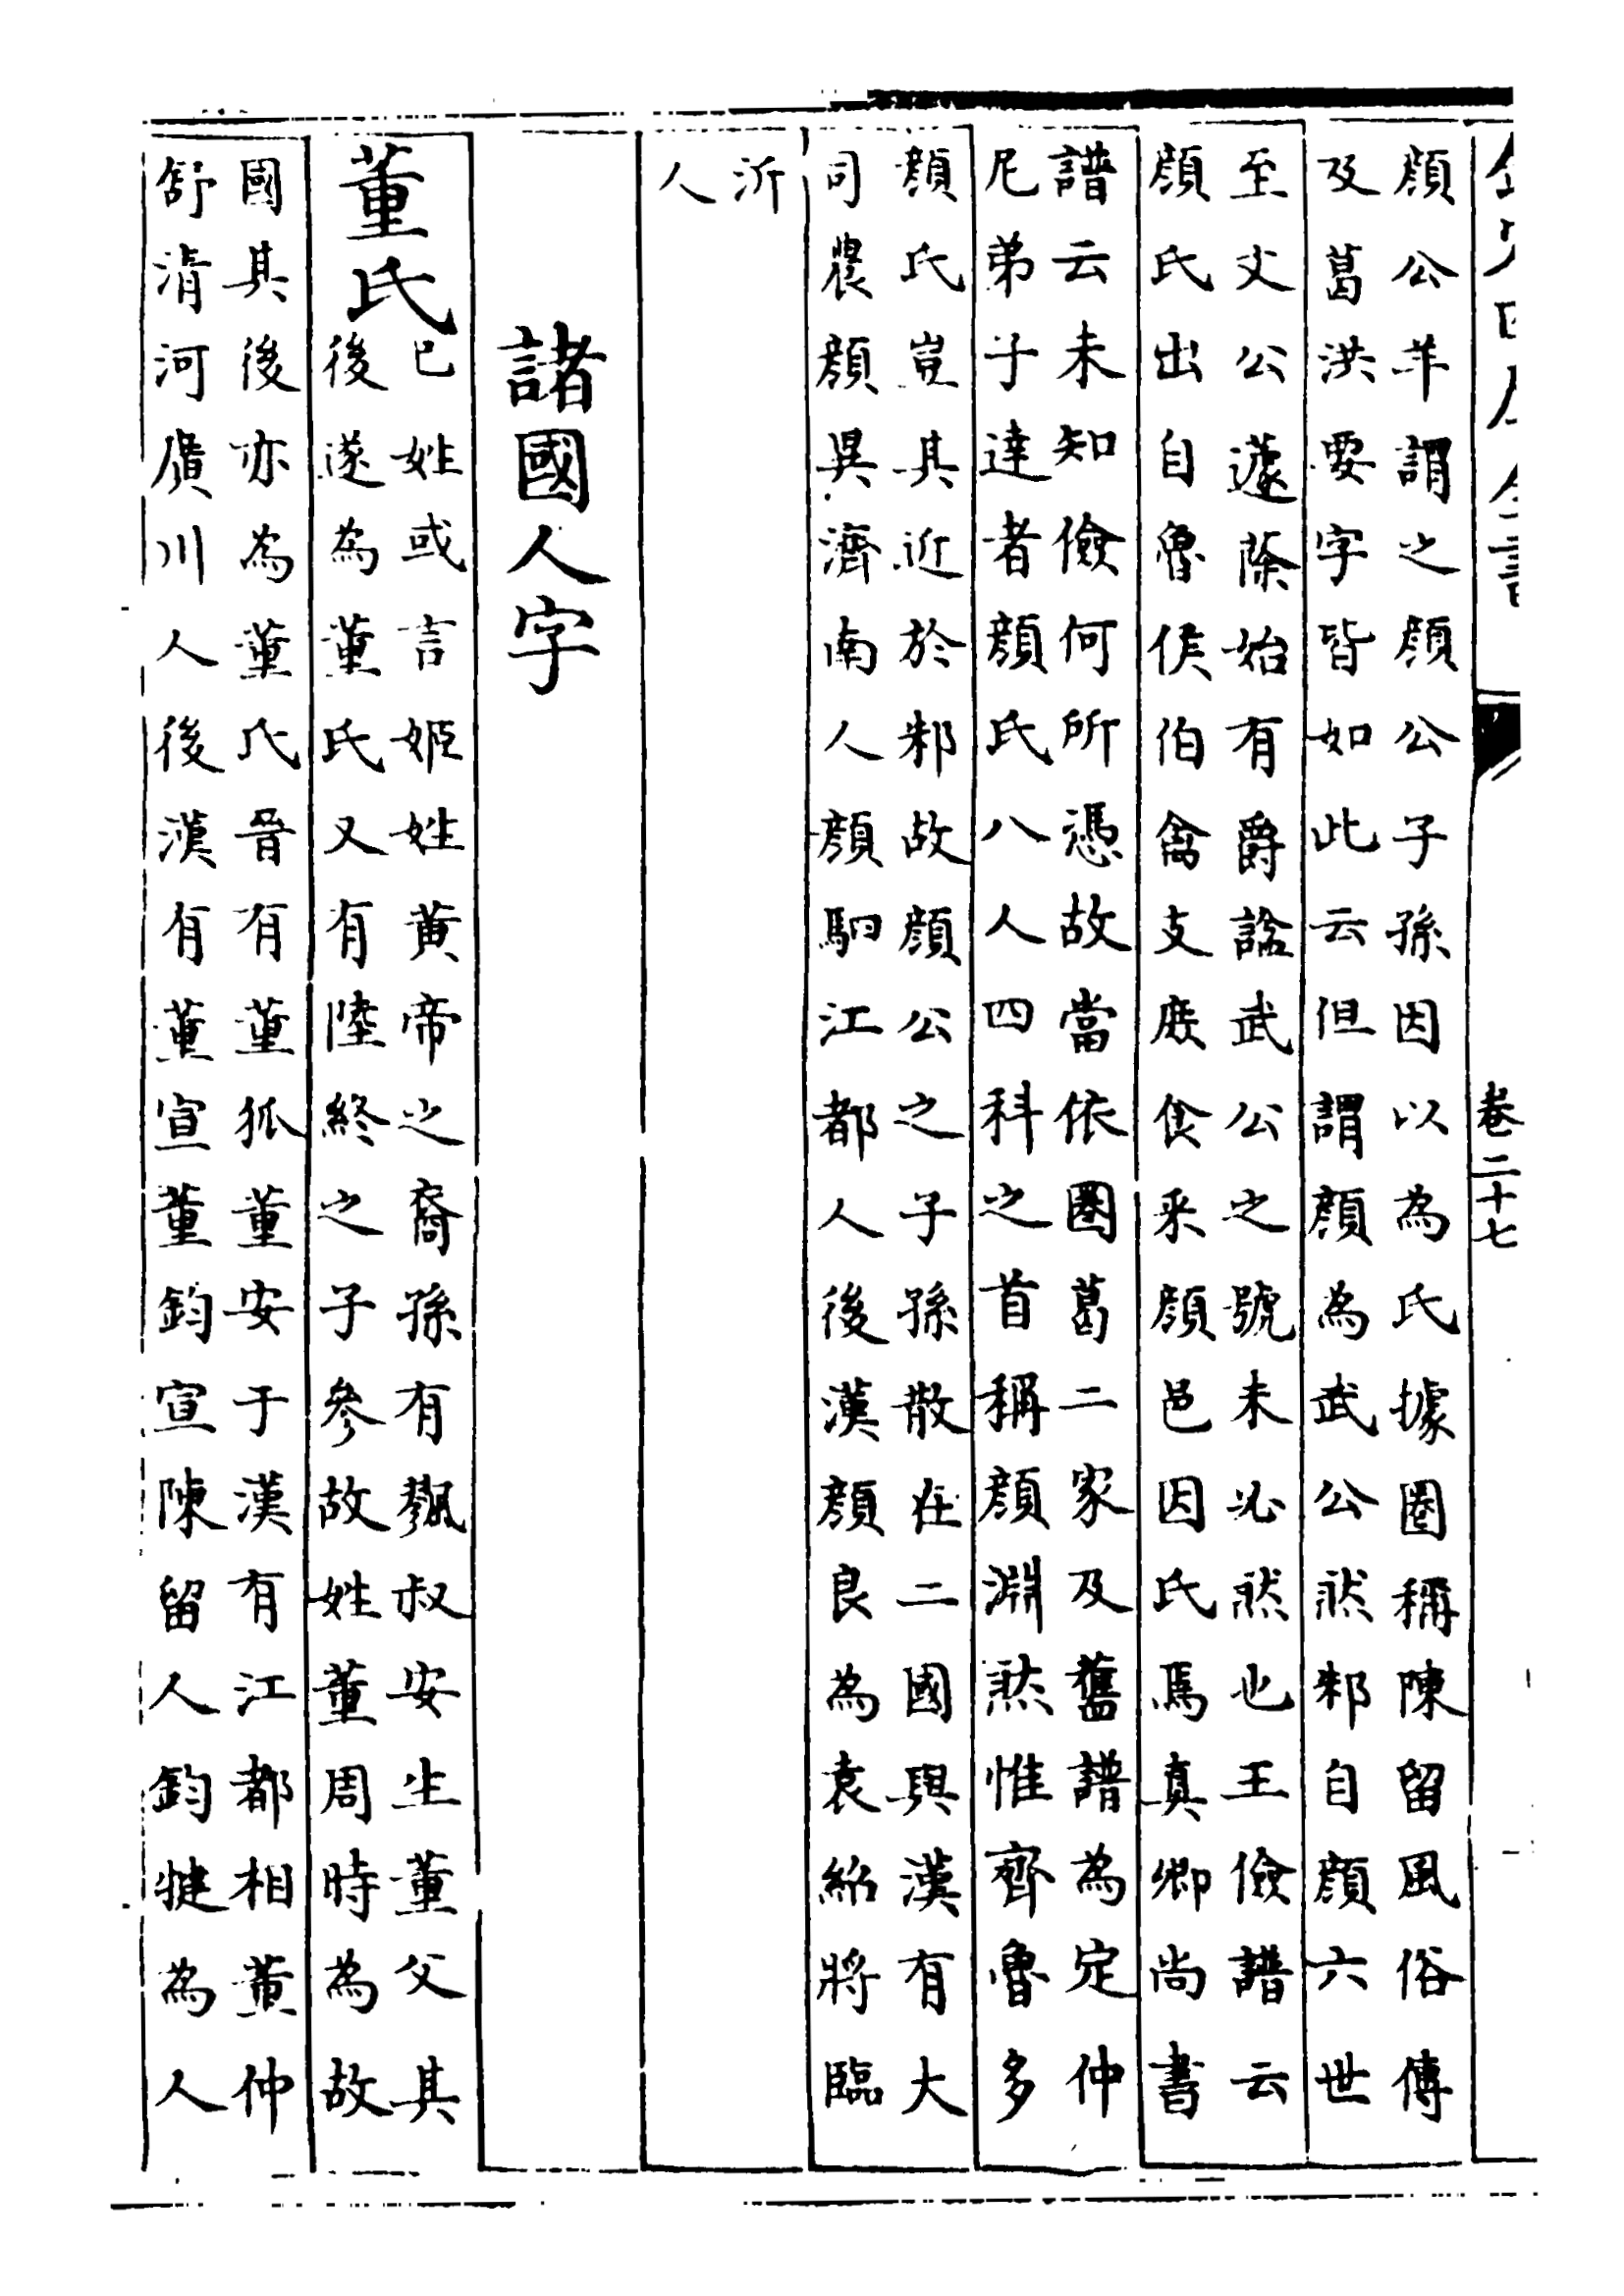 欽定四庫全書
卷二十七
顔公羊謂之顔公子孫因以為氏據圈稱陳留風俗傳
及葛洪要字皆如此云但謂顔為武公然邾自顔六世
至文公蘧蒢始有爵諡武公之號未必然也王儉譜云
顔氏出自魯侯伯禽支庶食采顔邑因氏焉真卿尚書
譜云未知儉何所憑故當依圈葛二家及舊譜為定仲
尼弟子達者顔氏八人四科之首稱顔淵然惟齊魯多
顔氏豈其近於邾故顔公之子孫散在二國與漢有大
司農顔異濟南人顔駟江都人後漢顔良為袁紹將臨
沂
人
諸國人字
董氏
已姓或言姬姓黄帝之裔孫有飂叔安生董父其
後遂為董氏又有陸終之子參故姓董周時為故
國其後亦為董氏晉有董狐董安于漢有江都相董仲
舒清河廣川人後漢有董宣董鈞宣陳留人鈞犍為人